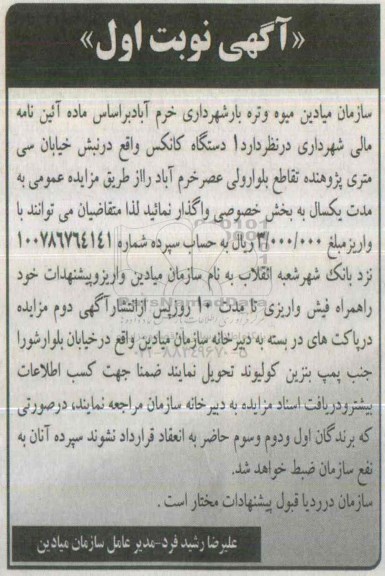 «آگهی نوبت اول»
سازمان میادین میوه وتره بارشهرداری خرم آبادبراساس ماده آئین نامه
مالی شهرداری درنظردارد۱ دستگاه کانکس واقع درنبش خیابان سی
متری پژوهنده تقاطع بلوارولی عصرخرم آباد رااز طریق مزایده عمومی به
مدت یکسال به بخش خصوصی واگذار نمائید لذا متقاضیان می توانند با
واریزمبلغ ۳/۰۰۰/۰۰۰ ریال به حساب سپرده شماره ۱۰۰۷۸۶۷۶۴۱۴۱
نزد بانک شهرشعبه انقلاب به نام سازمان میادین واریزوپیشنهدات خود
راهمراه فیش واریزی تا مدت ۱۰ روزپس ازانتشارآگهی دوم مزایده
درپاکت های در بسته به دبیرخانه سازمان میادین واقع درخیابان بلوارشورا
جنب پمپ بنزین کولیوند تحویل نمایند ضمنا جهت کسب اطلاعات
بیشترودریافت اسناد مزایده به دبیرخانه سازمان مراجعه نمایند، درصورتی
که برندگان اول ودوم وسوم حاضر به انعقاد قرارداد نشوند سپرده آنان به
نفع سازمان ضبط خواهد شد.
سازمان درردیا قبول پیشنهادات مختار است .
علیرضا رشید فرد-مدیر عامل سازمان میادین